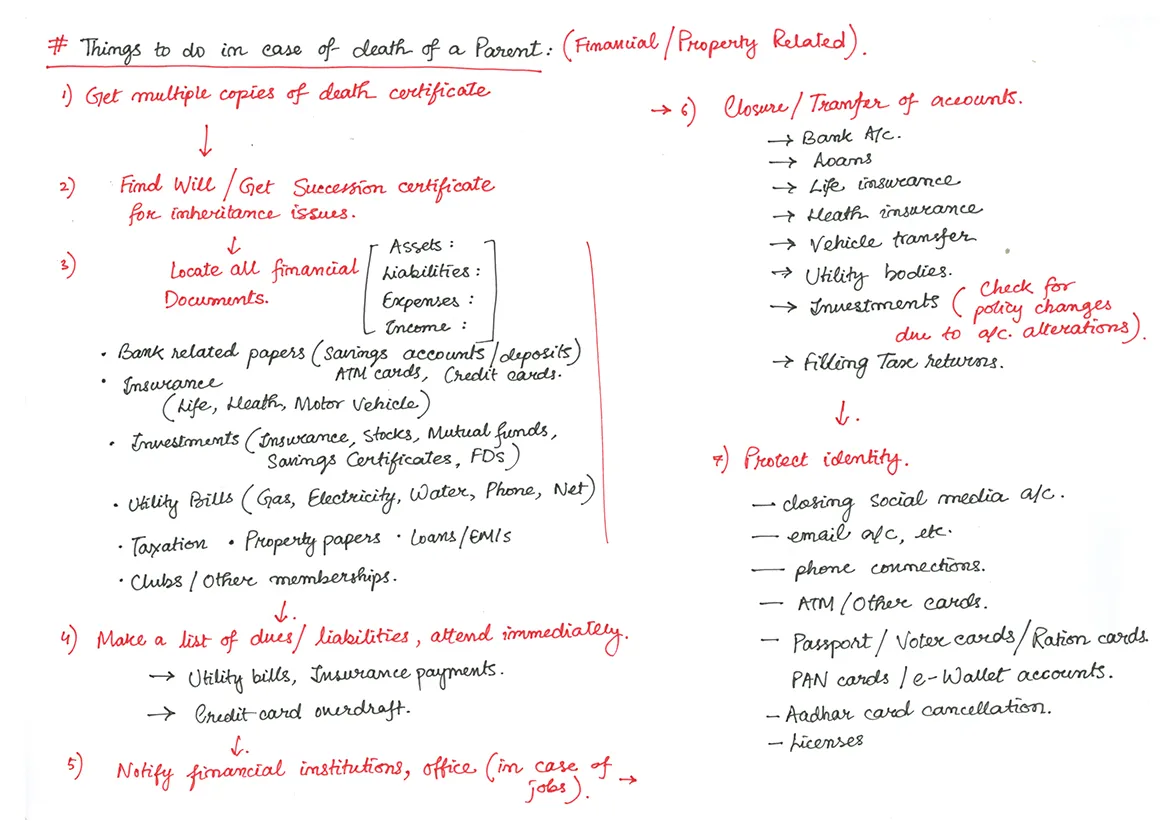 # Things to do in case of death of a Parent: (Financial/Property Related).
1) Get multiple copies of death certificate
↓
2) Find Will/Get Succession certificate
for inheritance issues.
↓
3) Locate all financial
Documents.
Assets:
Liabilities:
Expenses:
Income:
• Bank related papers (savings accounts/deposits)
ATM cards, Credit cards.
• Insurance
(Life, Heath, Motor Vehicle)
• Investments (Insurance, Stocks, Mutual funds,
Savings Certificates, FDs)
• Utility Bills (Gas, Electricity, Water, Phone, Net)
• Taxation • Property papers • Loans/EMIs
• Clubs/Other memberships.
↓.
4) Make a list of dues/liabilities, attend immediately.
→ Utility bills, Insurance payments.
→ Credit card overdraft.
↓.
5) Notify financial institutions, office (in case of
jobs). →
→ 6) Closure/Transfer of accounts.
→ Bank A/c.
→ Loans
→ Life insurance
→ Heath insurance
→ Vehicle transfer
→ Utility bodies.
→ Investments (Check for
policy changes
due to a/c. alterations).
→ Filling Tax returns.
↓.
7) Protect identity.
– closing social media a/c.
– email a/c, etc.
– phone connections.
– ATM/Other cards.
– Passport/Voter cards/Ration cards.
PAN cards/e-Wallet accounts.
– Aadhar card cancellation.
– Licenses